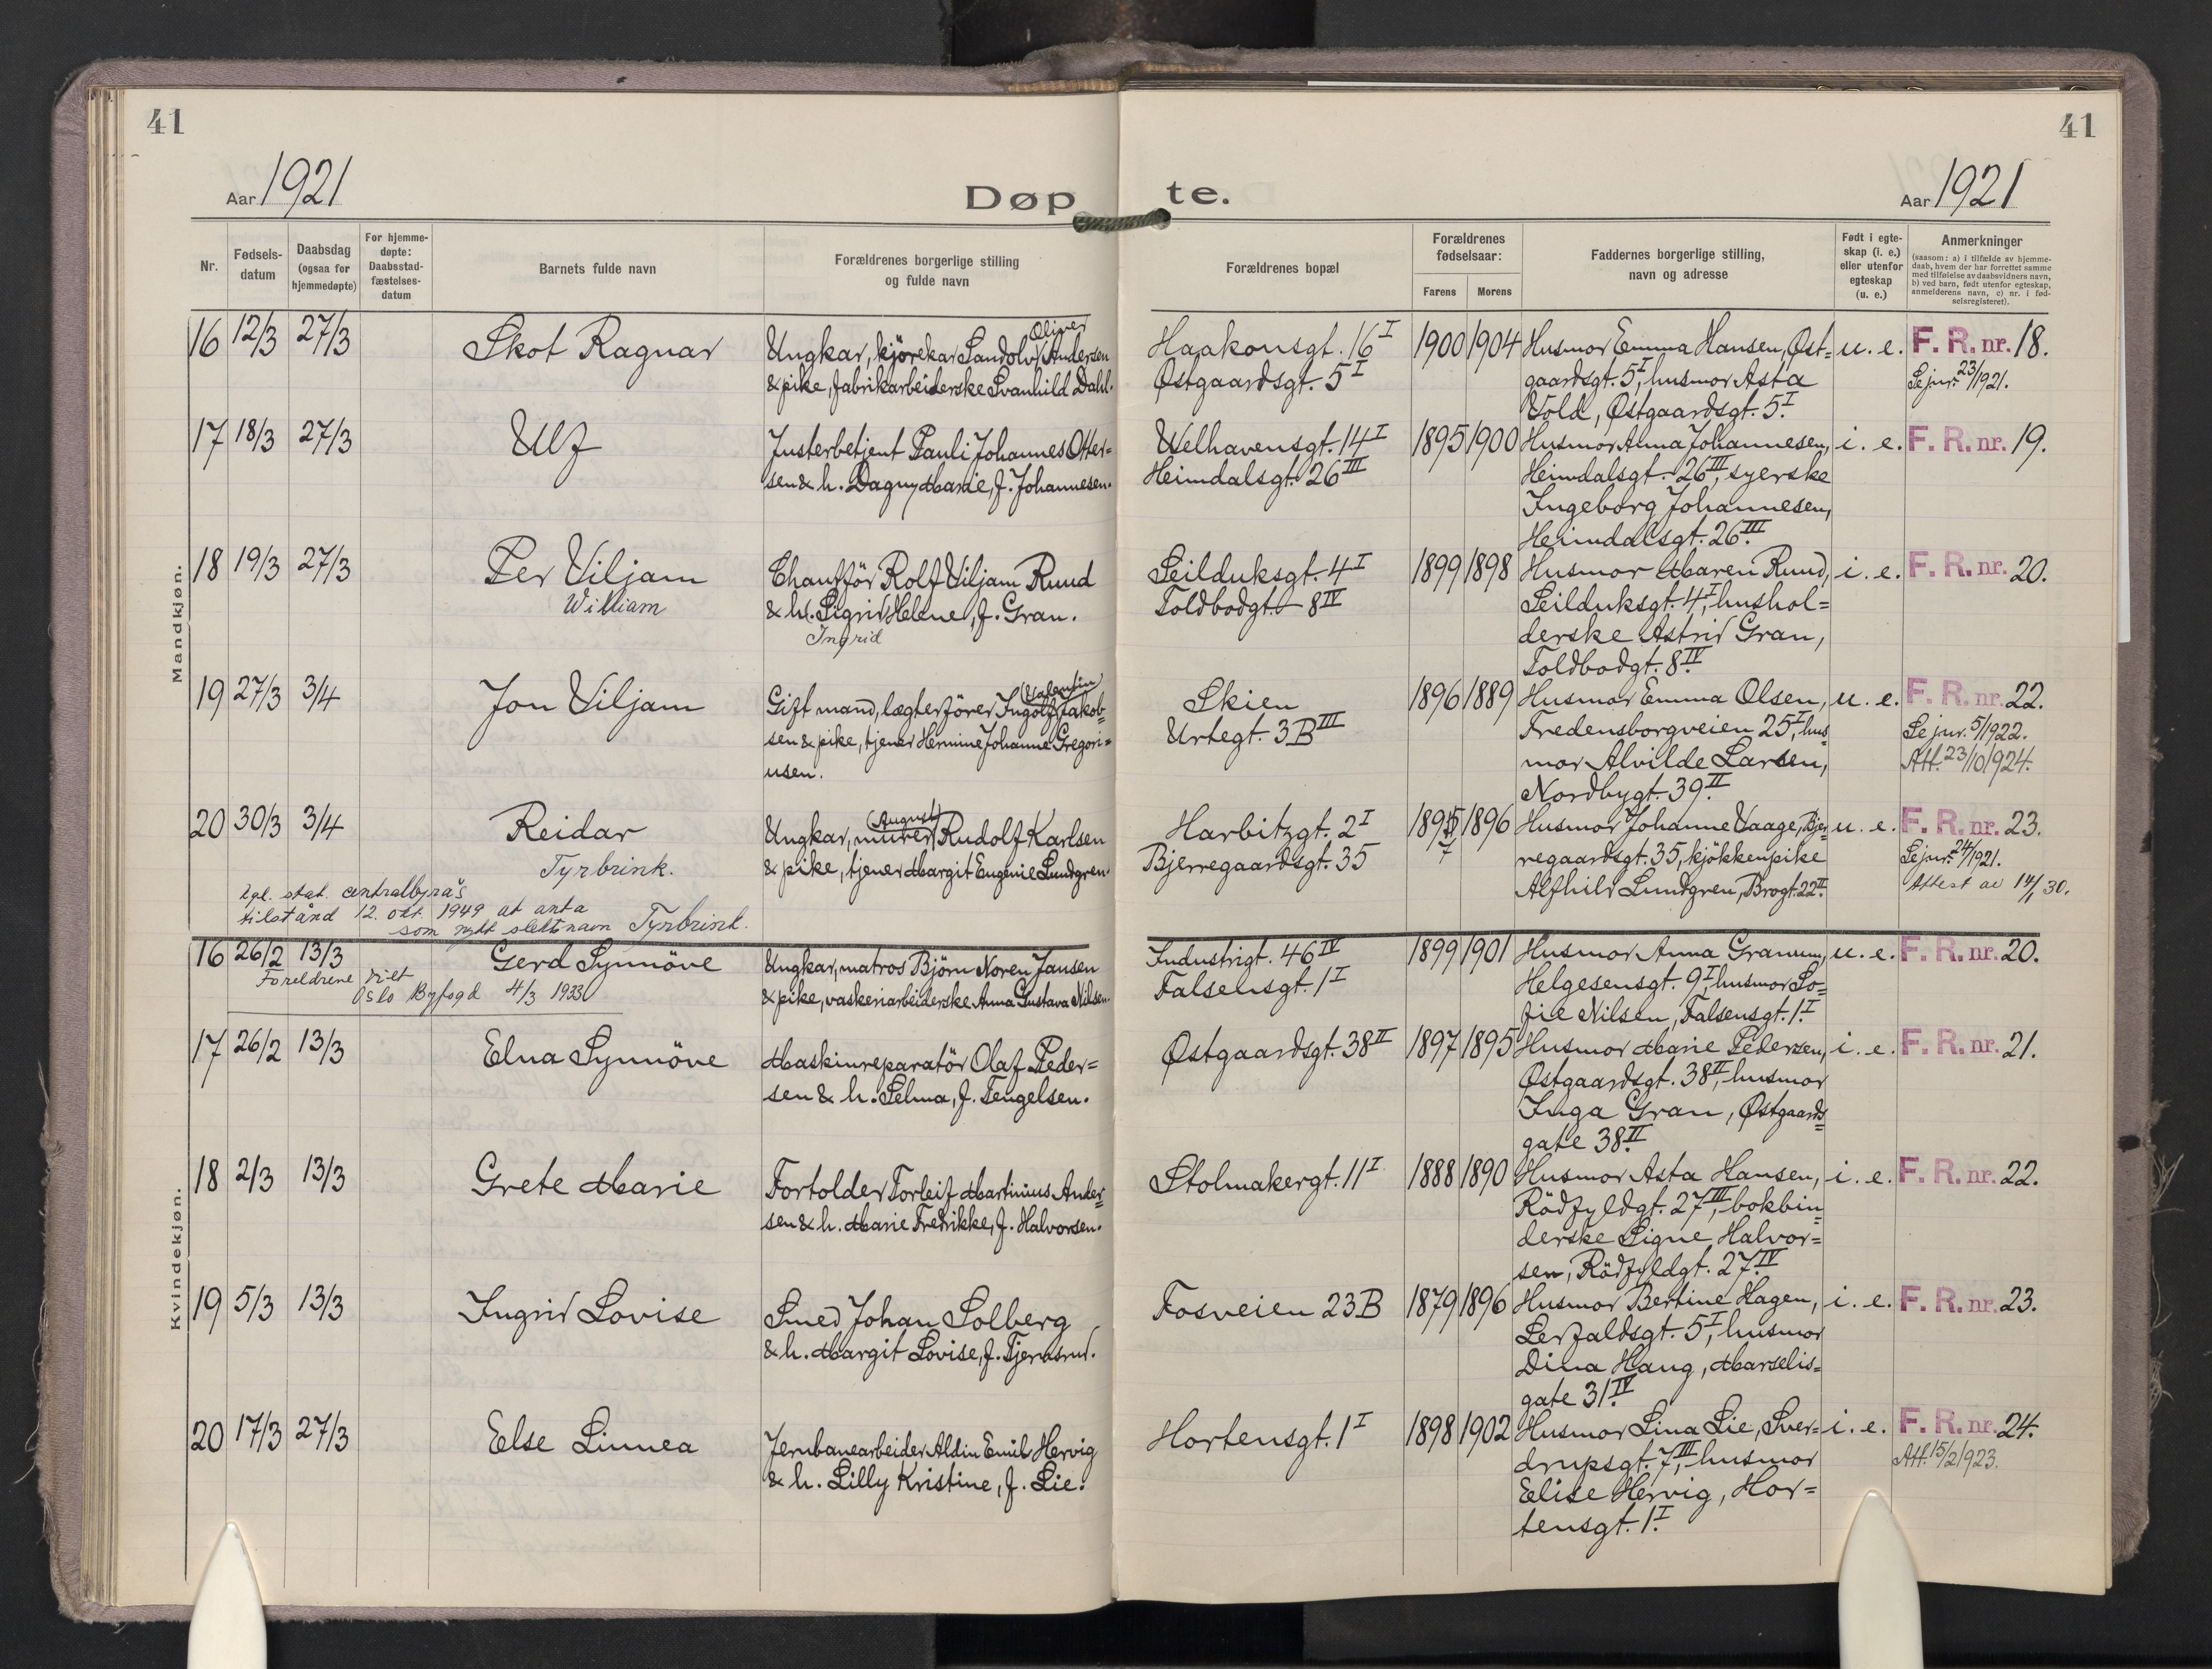 41
41
Aar 1921
Døpte.
Aar 1921
Nr.
Fødsels-
datum
Daabsdag
(ogsaa før
hjemmedøpte)
For hjemme-
døpte:
Daabsstad-
fæstelses-
datum
Barnets fulde navn
Forældrenes borgerlige stilling
og fulde navn
Forældrenes bopæl
Forældrenes
fødselsaar:
Farens
Morens
Faddernes borgerlige stilling,
navn og adresse
Født i egte-
skap (i. e.)
eller utenfor
egteskap
(u. e.)
Anmerkninger
(saasom: a) i tilfælde av hjemme-
daab, hvem der har forrettet samme
med tilføielse av daabsvidners navn,
b) ved barn, født utenfor egteskap,
anmelderens navn, c) nr. i fød-
selsregisteret).
Mandkjøn.
16 12/3 27/3 Skot Ragnar
Oliver
Ungkar, kjørekar Sandolv Andersen
& pike, fabrikarbeiderske Svanhild Dahl.
Haakonsgt. 16 I
Østgaardsgt. 5 I
1900 1904
Husmor Emma Hansen, Øst=
gaardsgt. 5 I, husmor Asta
Vold, Østgaardsgt. 5 I.
u. e. F. R. nr. 18.
Se jnr. 23/1921.
17 18/3 27/3 Ulf
Justerbetjent Pauli Johannes Otter=
sen & h. Dagny Marie, f. Johannesen.
Welhavensgt. 14 I
Heimdalsgt. 26 III
1895 1900
Husmor Anna Johannesen,
Heimdalsgt. 26 III, syerske
Ingeborg Johannesen,
Heimdalsgt. 26 III.
i. e. F. R. nr. 19.
18 19/3 27/3 Per Viljam
William
Chaufför Rolf Viljam Ruud
& h. Sigrid Helene, f. Gran.
Ingrid
Seilduksgt. 4 I
Toldbodgt. 8 IV
1899 1898
Husmor Maren Ruud,
Seilduksgt. 4 I, hushol=
derske Astrid Gran,
Toldbodgt. 8 IV.
i. e. F. R. nr. 20.
19 27/3 3/4 Jon Viljam
(Valentin)
Gift mand, lægterförer Ingolf Jakob=
sen & pike, tjener Hermine Johanne Gregori=
usen.
Skien
Urtegt. 3 B III
1896 1889
Husmor Emma Olsen,
Fredensborgveien 25 I, hus=
mor Alvilde Larsen,
Nordbygt. 39 II.
u. e. F. R. nr. 22.
Se jnr. 5/1922.
Att. 23/10 1924.
20 30/3 3/4 Reidar
Tyrbrink.
(August)
Ungkar, murer Rudolf Karlsen
& pike, tjener Margit Eugenie Lundgren.
Harbitzgt. 2 I
Bjerregaardsgt. 35
1895 1896
7
Husmor Johanne Vaage, Bjer=
regaardsgt. 35, kjökkenpike
Alfhild Lundgren, Brogt. 22 II.
u. e. F. R. nr. 23.
Se jnr. 24/1921.
Attest av 14/1 30.
Igl. stat. centralbyrå's
tilstånd 12. okt. 1949 at anta
som nytt slektsnavn Tyrbrink.
Kvindekjøn.
16 26/2 13/3 Gerd Synnöve
Foreldrene viet
Oslo Byfogd 4/3 1933
Ungkar, matros Björn Noren Jansen
& pike, vaskeriarbeiderske Anna Gustava Nilsen.
Industrigt. 46 IV
Falsensgt. 1 I
1899 1901
Husmor Anna Granum,
Helgesensgt. 9 I, husmor So=
fie Nilsen, Falsensgt. 1 I.
u. e. F. R. nr. 20.
17 26/2 13/3 Elna Synnöve
Maskinreparatör Olaf Peder=
sen & h. Selma, f. Tengelsen.
Østgaardsgt. 38 II
1897 1895
Husmor Marie Pedersen,
Østgaardsgt. 38 II, husmor
Inga Gran, Østgaards=
gate 38 II.
i. e. F. R. nr. 21.
18 2/3 13/3 Grete Marie
Fortolder Torleif Martinius Ander=
sen & h. Marie Fredrikke, f. Halvorsen.
Stolmakergt. 11 I
1888 1890
Husmor Asta Hansen,
Rödfyldgt. 27 III, bokbin=
derske Signe Halvor=
sen, Rödfyldgt. 27 IV.
i. e. F. R. nr. 22.
19 5/3 13/3 Ingrid Lovise
Smed Johan Solberg
& h. Margit Lovise, f. Tjernsrud.
Fosveien 23 B
1879 1896
Husmor Bertine Hagen,
Lerfaldsgt. 5 I, husmor
Dina Haug, Marselis=
gate 31 IV.
i. e. F. R. nr. 23.
20 17/3 27/3 Else Linnea
Jernbanearbeider Aldin Emil Hervig
& h. Lilly Kristine, f. Lie.
Hortensgt. 1 I
1898 1902
Husmor Lina Lie, Sver=
drupsgt. 7 III, husmor
Elise Hervig, Hor=
tensgt. 1 I.
i. e. F. R. nr. 24.
Att. 15/2 1923.